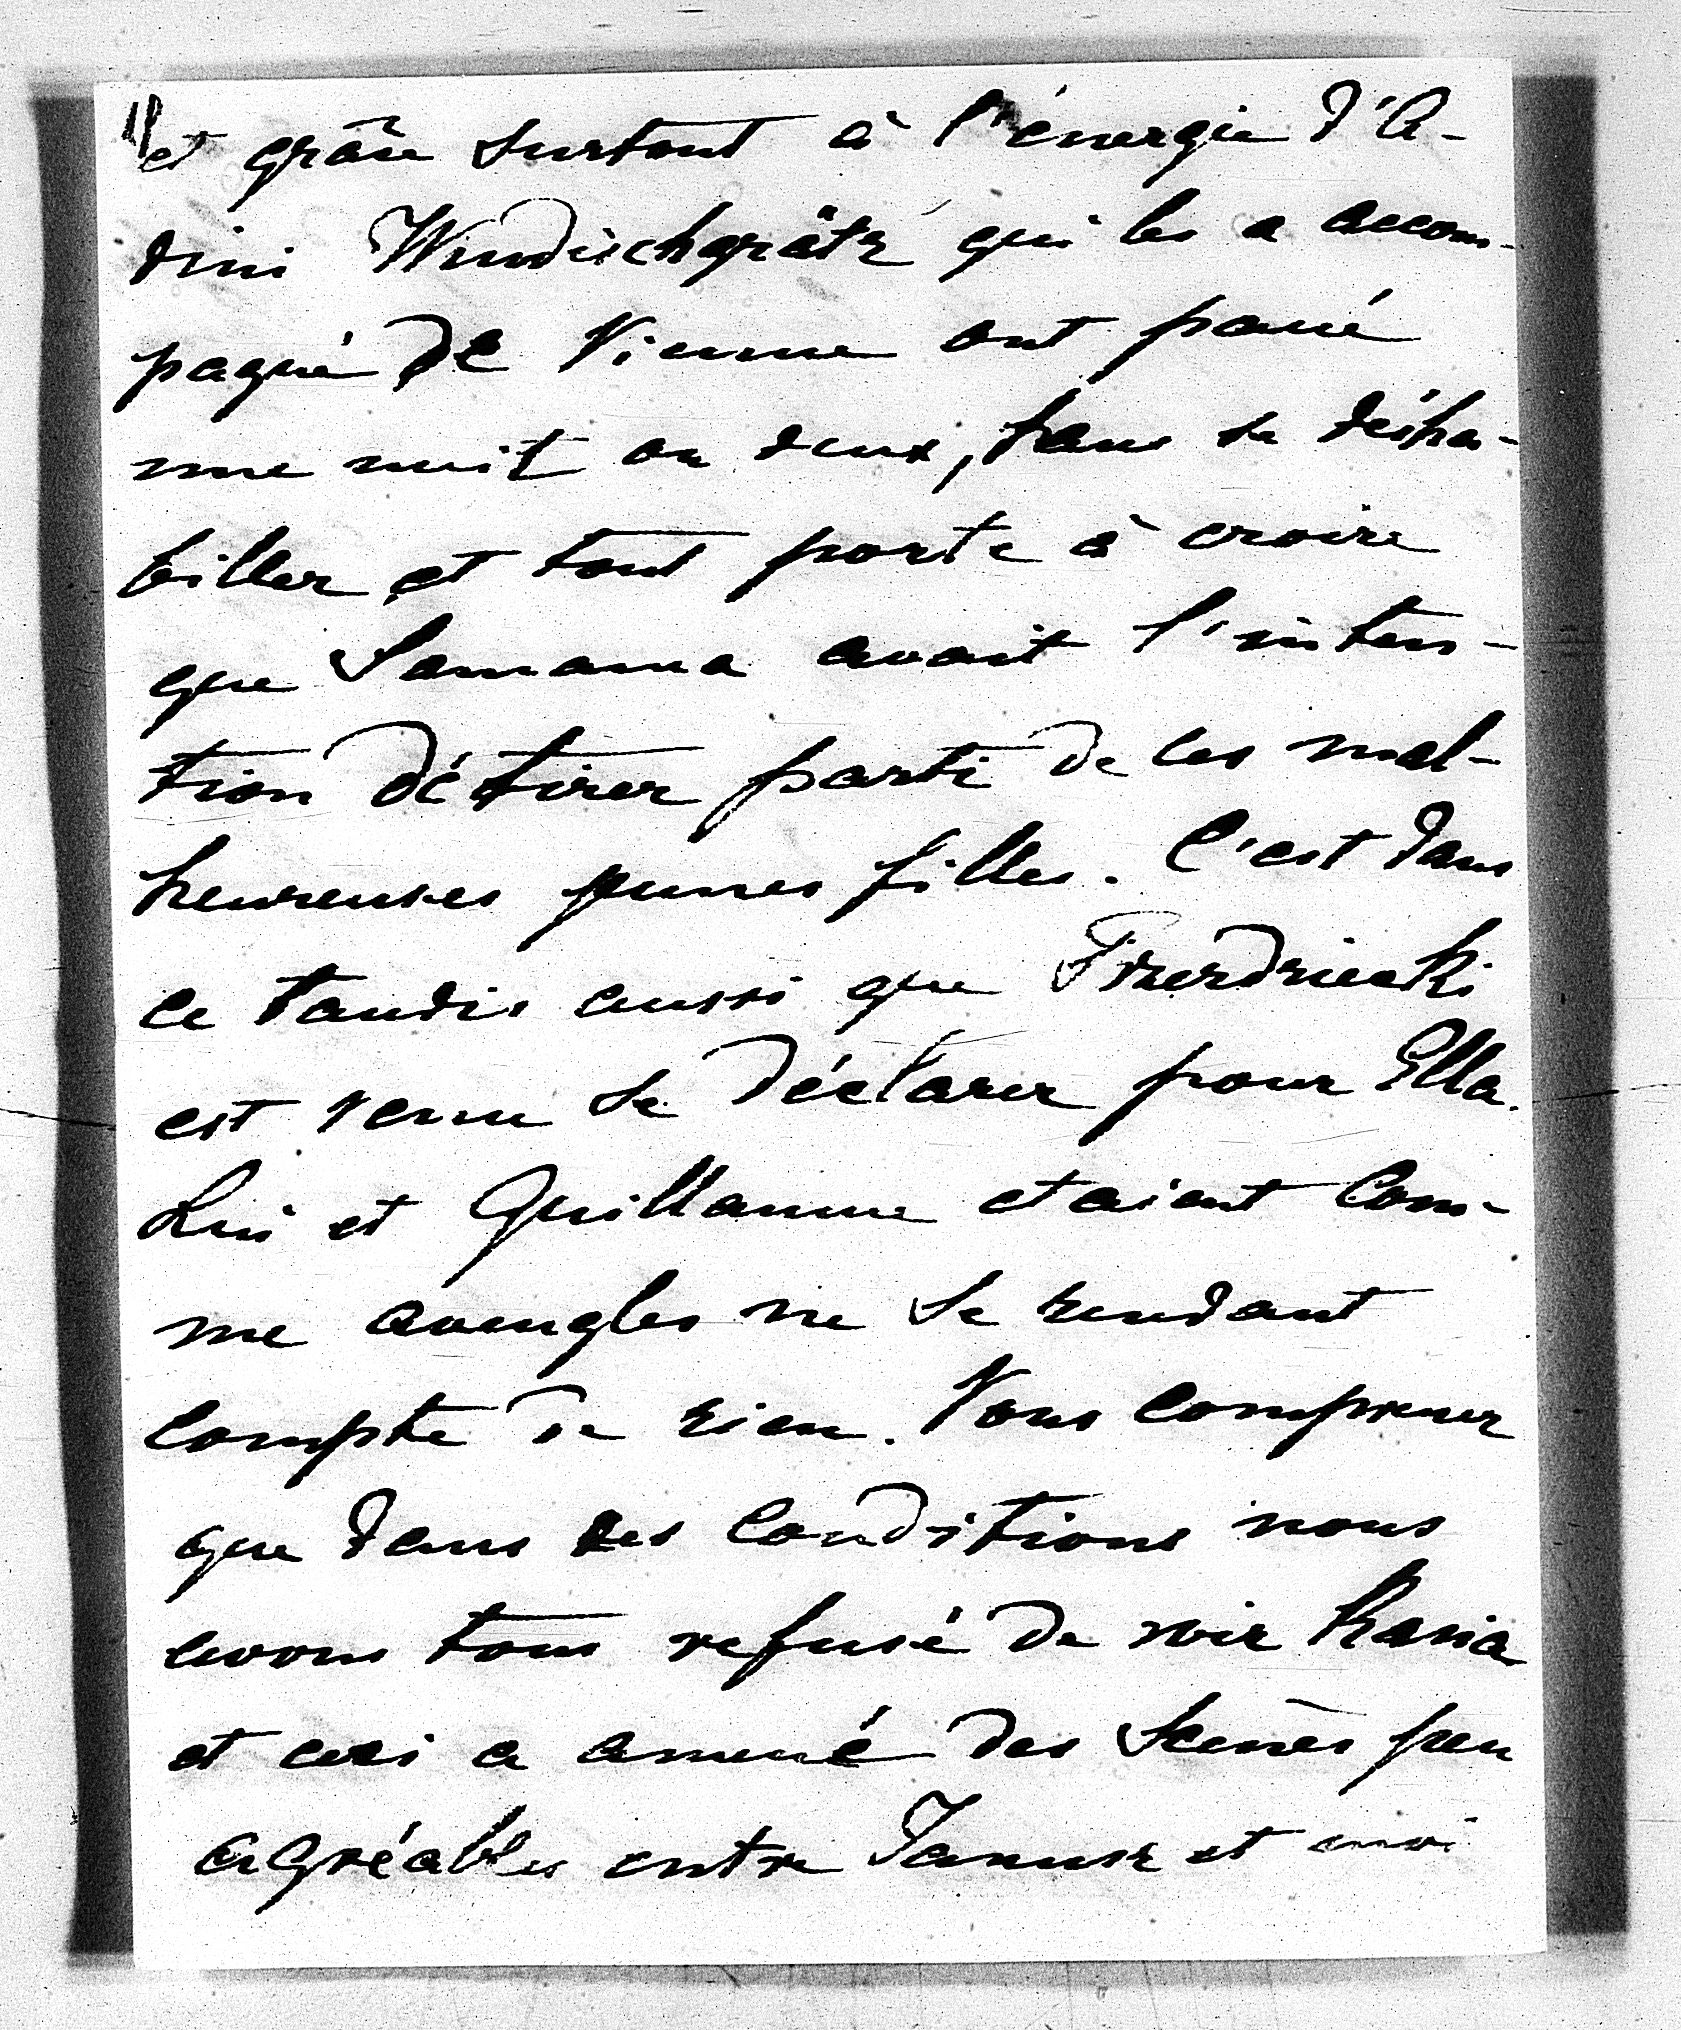 et grâce surtout à l'énergie d'A-
dini Windischgrätz qui les a accom-
pagné de Vienne ont passé
une nuit ou deux, sans se désha-
biller et tout porte à croire
que Samama avait l'inten-
tion de tirer parti de ces mal-
heureuses jeunes filles. C'est dans
ce taudis aussi que
est venu se déclarer pour Ella.
Lui et Guillaume etaient com-
me aveugles ne se rendant
compte de rien. Vous comprenez
que dans ces conditions nous
avons tous refusé de voir Kasia
et ceci a amené des scènes peu
agréables entre Janusz et moi